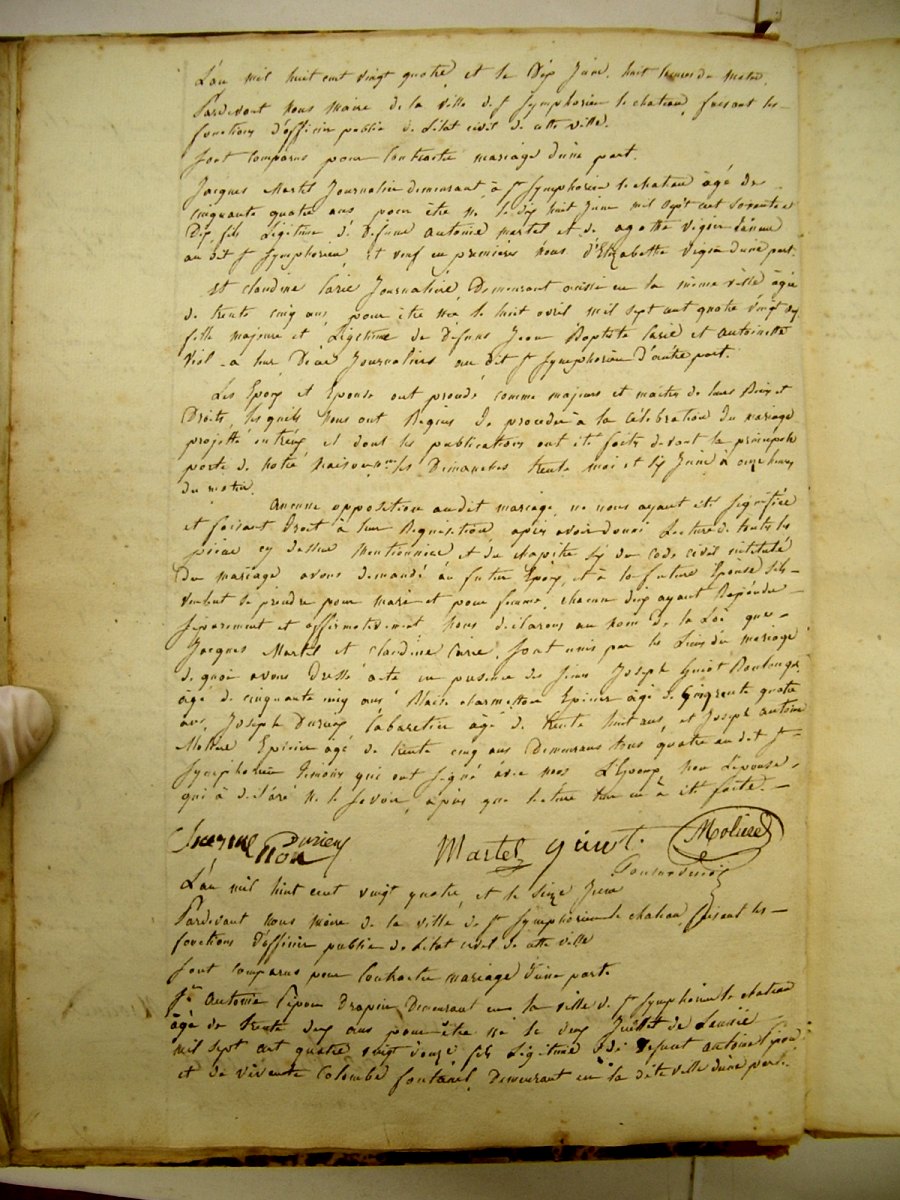 L'an mil huit cent vingt quatre et le Dix Juin, huit heures du matin
Pardevant nous Maire de la ville de St Symphorien le chateau, faisant les
fonctions d'officier public de l'etat civil de cette ville.
Sont comparus pour Contracter mariage d'une part.
Jacques Martel Journalier demeurant à St Symphorien le chateau âgé de
cinquante quatre ans pour être né le dix huit Juin mil sept cent soixante et
Dix fils Légitime de Defunt Antoine Martel et de agathe Vigier
au dit St Symphorien, et veuf en premieres Noces d'Elizabette Vigier d'une part.
et claudine Carie Journaliere Demeurant aussi en la même ville âgée
de trente cinq ans pour être née le huit avril mil sept cent quatre vingt
fille majeure et Légitime de Défunts Jean Baptiste Carie et antoinette
Viol Journaliers au dit St Symphorien d'autre part.
Les Epoux et Epouse ont procédé comme majeurs et maitres de leurs Biens et
Droits, lesquels Nous ont Requis De proceder à la célébration du mariage
projetté entr'eux et dont les publications ont été faites devant la principale
porte de notre maison les Dimanches trente mai et six Juin à onze heures
du matin.
Aucune opposition audit mariage, ne nous ayant été signifiée
et faisant Droit à leur Requisition, après avoir donné Lecture de toutes les
pièces cy dessus mentionnées et du chapitre six du Code civil intitulé
Du mariage avons demandé au futur Epoux, et à la future Epouse s'ils
veulent se prendre pour mari et pour femme, chacun d'eux ayant Repondu
séparement et affirmativement, Nous declarons au nom de la Loi que
Jacques Martel et claudine Carie, sont unis par les Liens du mariage
de quoi avons Dressé acte en presence des sieurs Joseph Guiot Boulanger
âgé de cinquante cinq ans Blaise charmetton Epicier âgé de cinquante quatre
ans, Joseph Durieux Cabaretier âgé de trente huit ans, et Joseph antoine
Moliere Epicier âgé de trente cinq ans Demeurans tous quatre au dit St
Symphorien temoins qui ont signé avec nous L'Epoux, non L'epouse
qui à declaré ne le savoir, après que lecture leur en à été faite.
Durieux
Martel guiot. Moliere
L'an mil huit cent vingt quatre, et le seize Juin
Pardevant nous Maire de la ville de St Symphorien le chateau, faisant les
fonctions d'officier public de l'etat civil de cette ville
Sont comparus pour Contracter mariage d'une part.
Jn Antoine Drapier Demeurant en la ville de St Symphorien le chateau
âgé de trente deux ans pour être né le deux Juillet de L'année
mil sept cent quatre vingt douze fils Légitime de Defunt antoine
et de vivante Colombe fontanel, Demeurant en la dite ville d'une part.